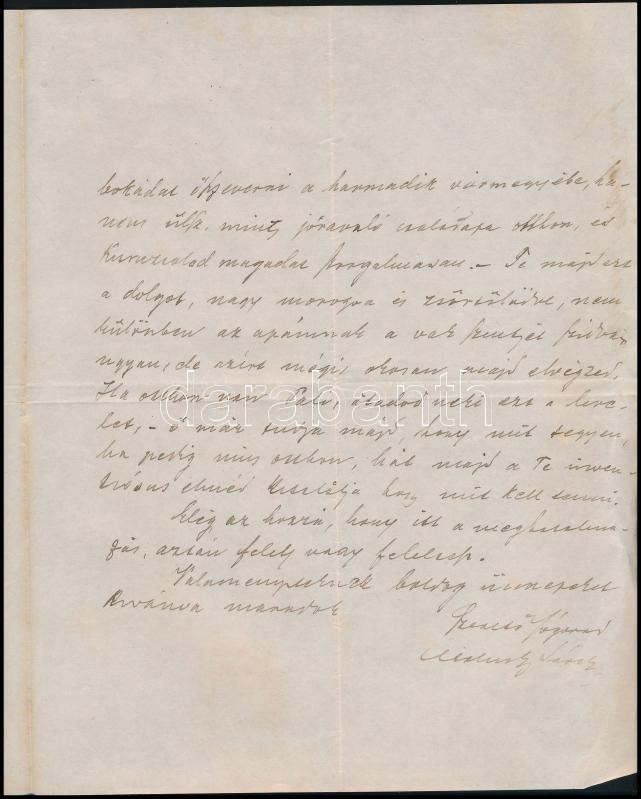 a harmadik vármegyébe, ha-
nem ülsz, mint jóravaló családapa otthon, és
magadat szorgalmasan. – Te majd ezt
a dolgot, nagy morogva és zsörtölődve, nem
különben az apámnak a szentjét szidva
ugyan, de azért mégis okosan majd elvégzed.
Ha otthon van Pali, átadod neki ezt a leve-
let, – ő már tudja majd, hogy mit tegyen,
ha pedig nincs otthon, hát majd a Te inven-
tiósus elméd kitalálja hogy mit kell tenni.
Elég az hozzá, hogy itt a meghatalma-
zás, aztán felelj vagy felelek.
Valamenyiteknek boldog ünnepeket
kivánva maradok
Szerető Sógorod
darabanth